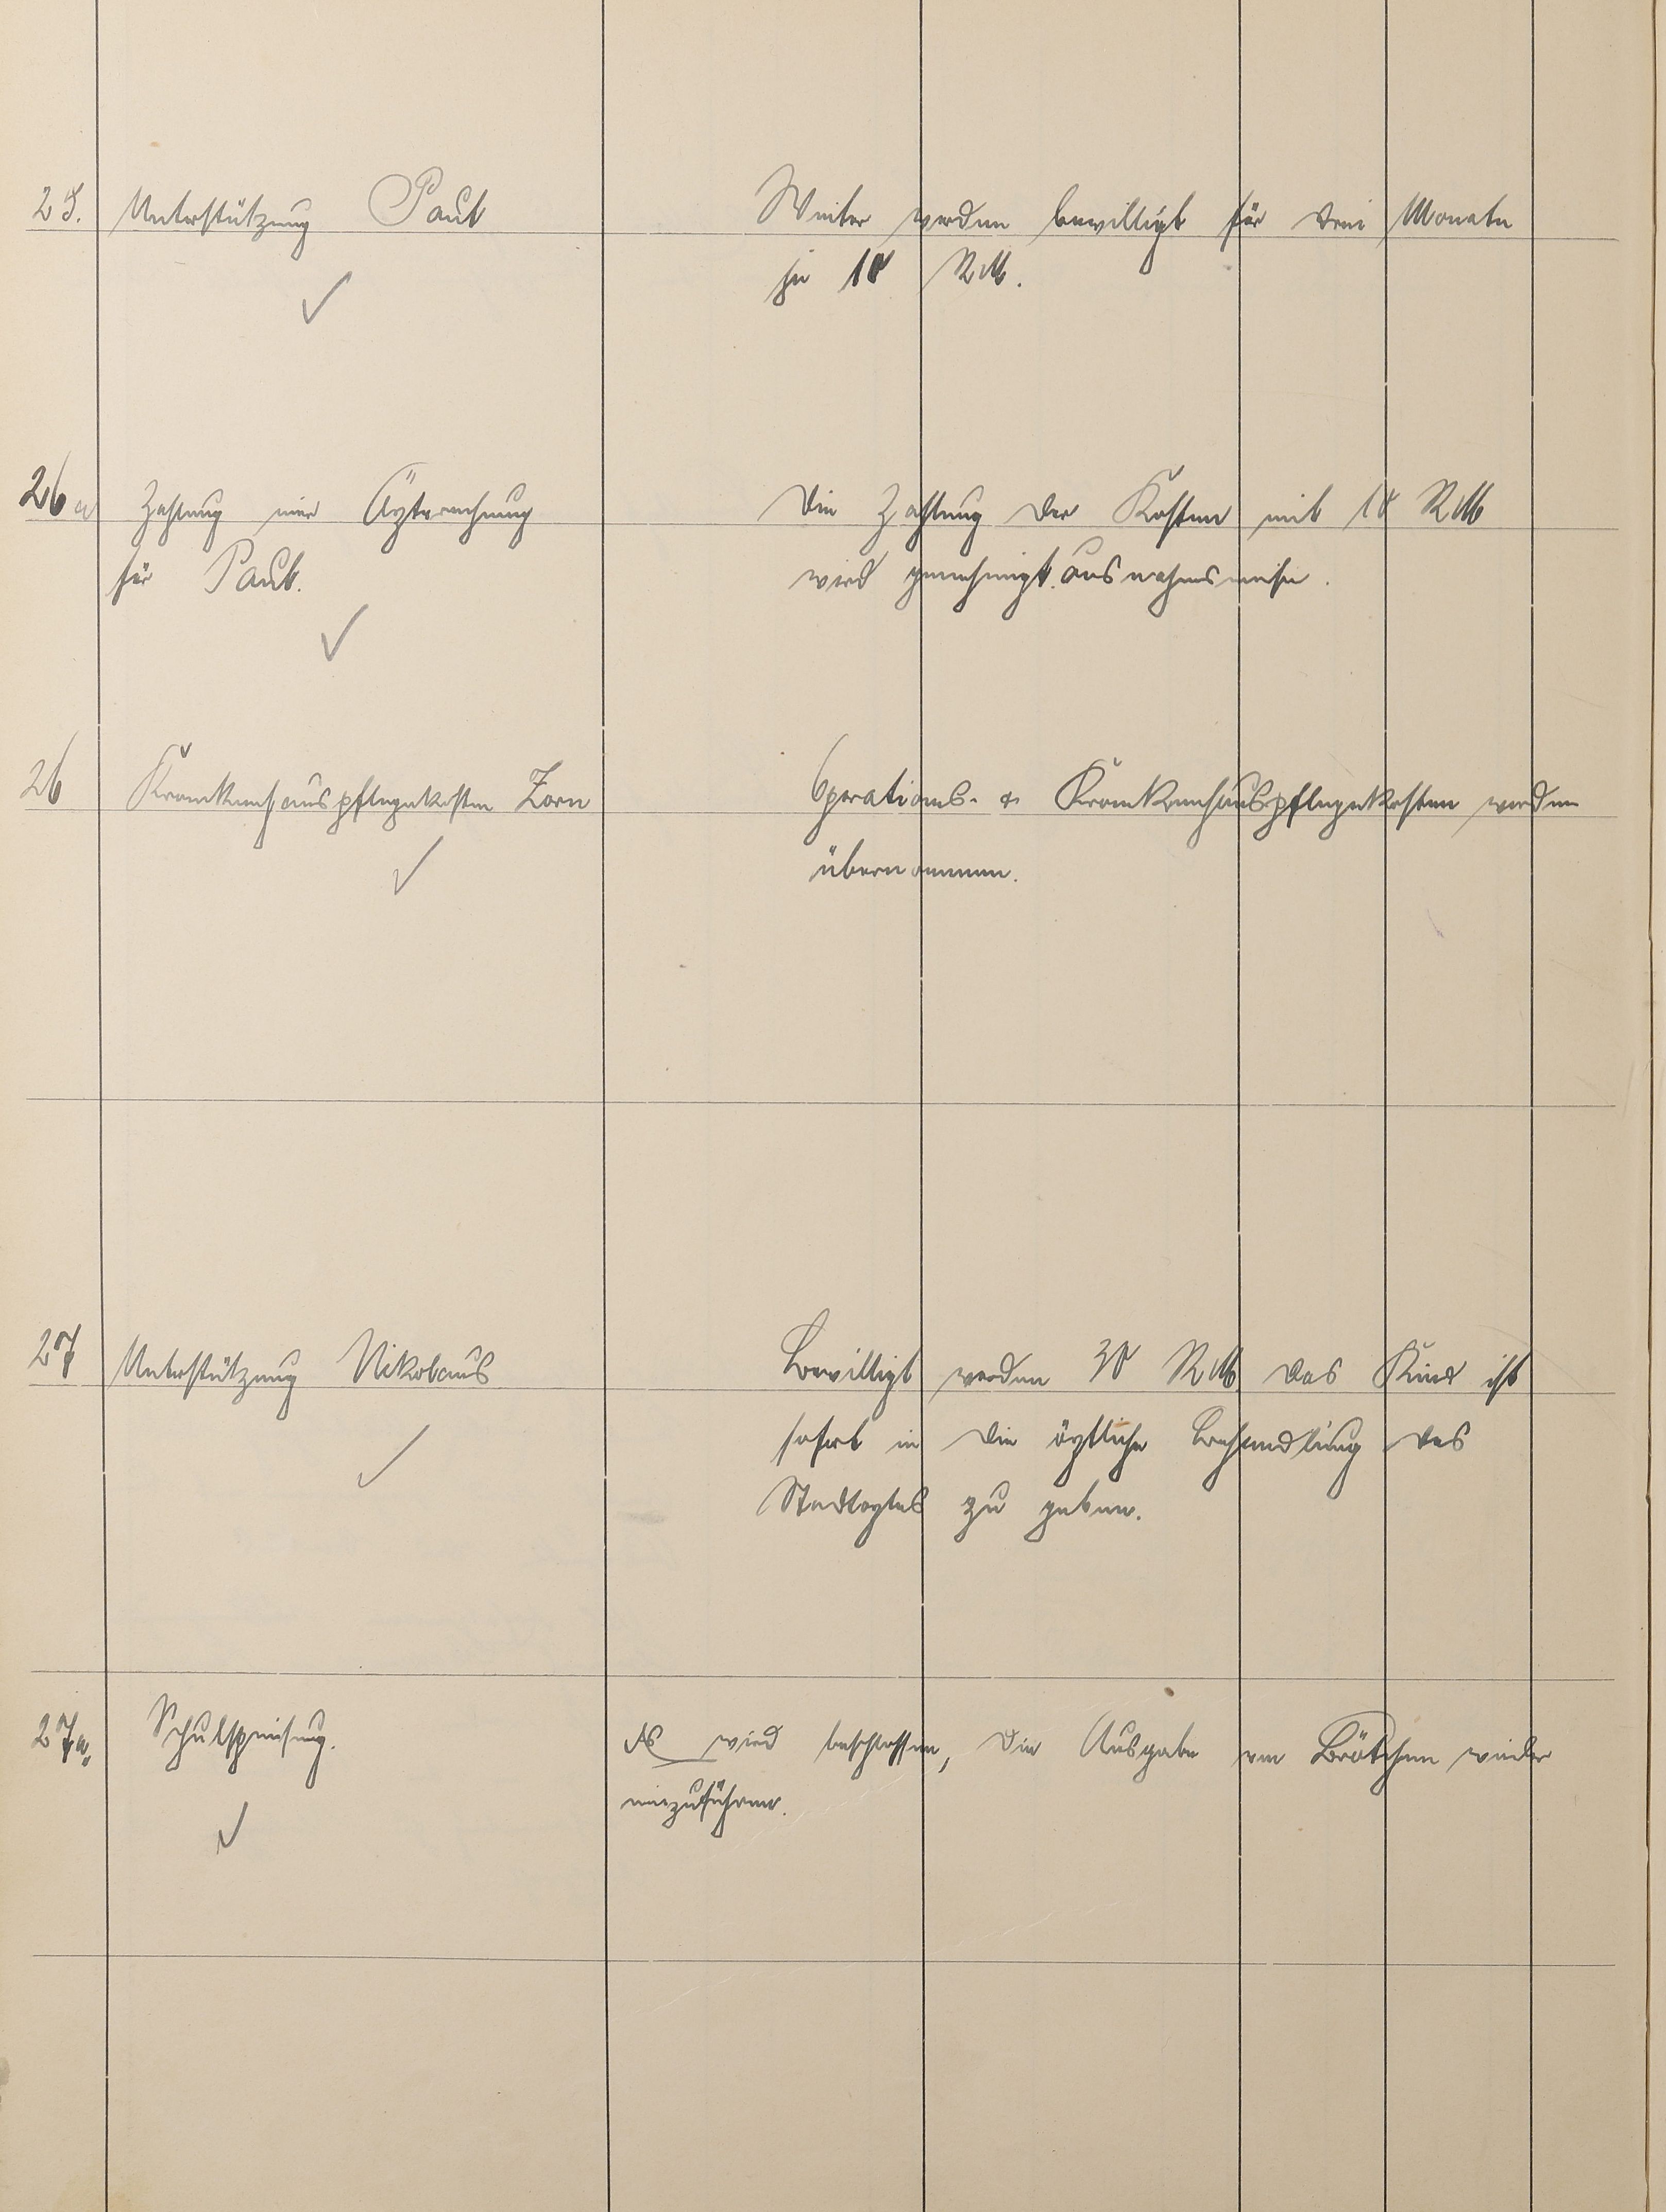 25. Unterstützung Paul
Weiter werden bewilligt für drei Monate
je 10 RM.
26a Zahlung einer Arztrechnung
für Paul.
Die Zahlung der Kosten mit 10 RM
wird genehmigt. ausnahmsweise.
26 Krankenhauspflegekosten Zorn
Operations- & Krankenhauspflegekosten werden
übernommen.
27 Unterstützung Nikolaus
Bewilligt werden 30 RM das Kind ist
sofort in die ärztliche Behandlung des
Stadtarztes zu geben.
27a, Schulspeisung.
Es wird beschlossen, die Ausgabe von Brötchen wieder
einzuführen.